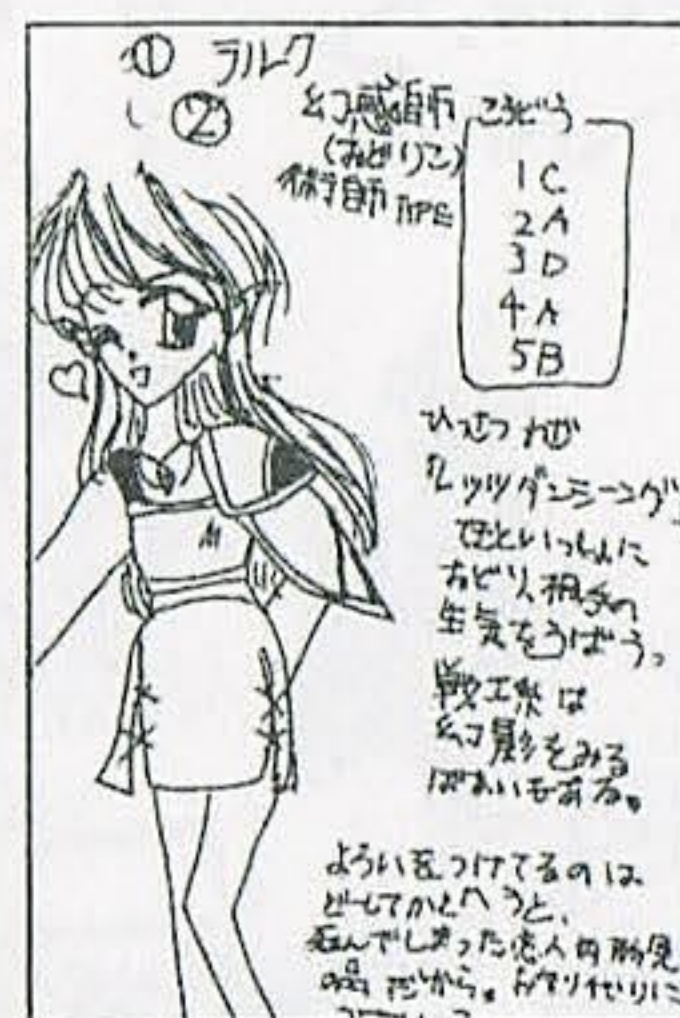 ① ラルク
②
幻惑師
(おどりこ)
術師TYPE
こうどう
1 C
2 A
3 D
4 A
5 B
ひっさつ わざ
レッツダンシーング
てきといっしょに
おどり、相手の
生気をうばう。
戦士系は
幻影をみる
ばあいもある。
よろいをつけてるのは
どーしてかとゆうと、
死んでしまった恋人の形見
の品だから。お守り代りに